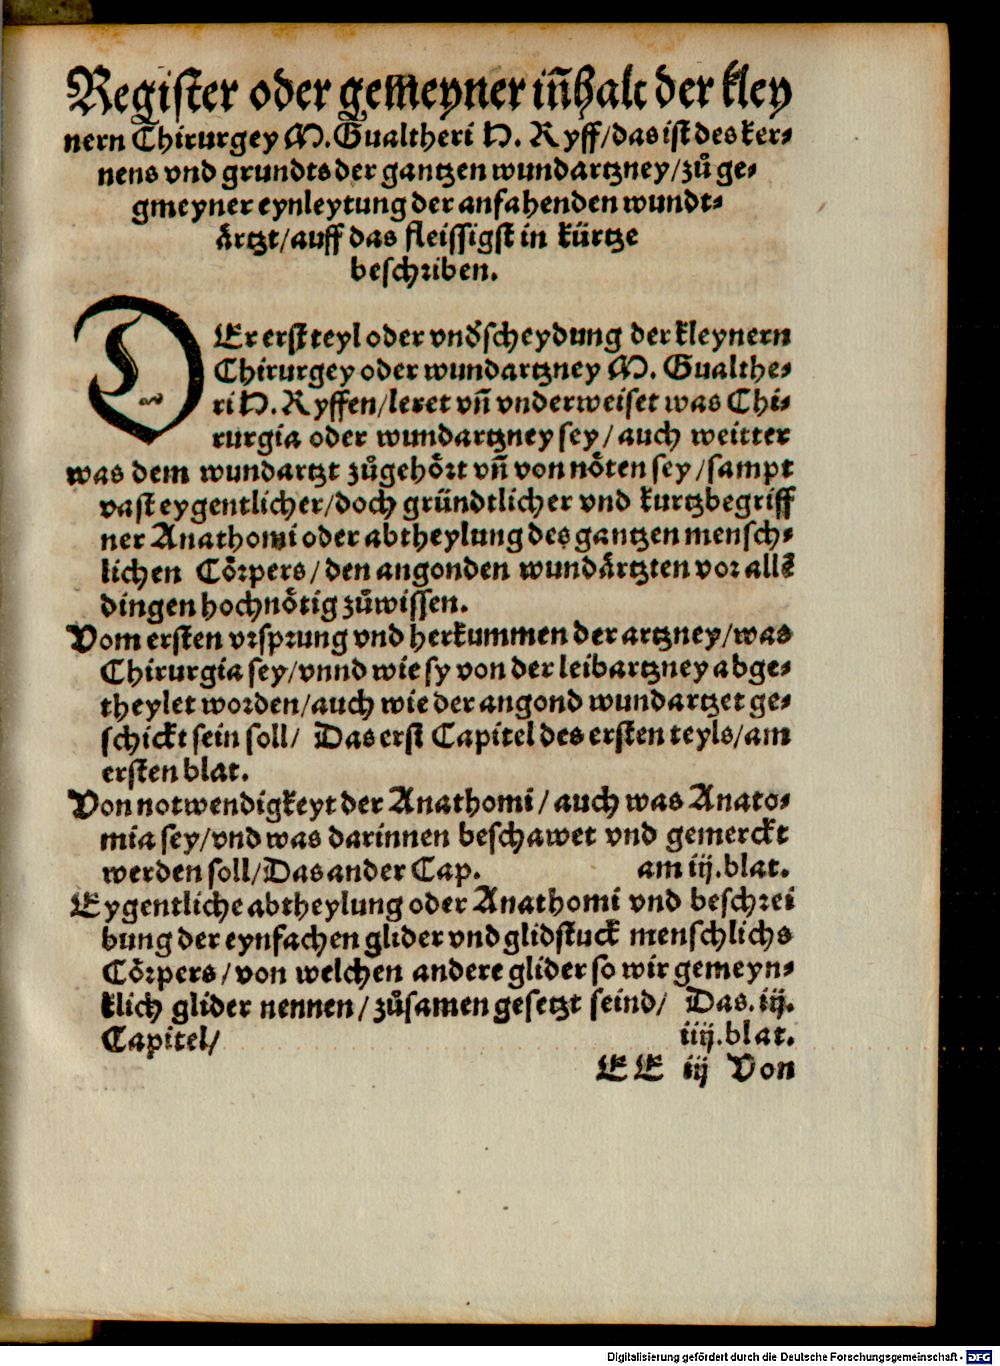 Register oder gemeyner iñhalt der kley
nern Chirurgey M. Gualtheri H. Ryff/das ist des ker⸗
nens vnd grundts der gantzen wundartzney/zů ge⸗
gmeyner eynleytung der anfahenden wundt⸗
ärtzt/auff das fleissigst in kürtze
beschriben.
DEr erst teyl oder vndscheydung der kleynern
Chirurgey oder wundartzney M. Gualthe⸗
ri H. Ryffen/leret vñ vnderweiset was Chi⸗
rurgia oder wundartzney sey/auch weitter
was dem wundartzt zůgehört vñ von nöten sey/sampt
vast eygentlicher/doch gründtlicher vnd kurtzbegriff
ner Anathomi oder abtheylung des gantzen mensch⸗
lichen Cörpers/den angonden wundärtzten vor allē
dingen hochnötig zůwissen.
Vom ersten vrsprung vnd herkummen der artzney/was
Chirurgia sey/vnnd wie sy von der leibartzney abge⸗
theylet worden/auch wie der angond wundartzet ge⸗
schickt sein soll/ Das erst Capitel des ersten teyls/am
ersten blat.
Von notwendigkeyt der Anathomi/auch was Anato⸗
mia sey/vnd was darinnen beschawet vnd gemerckt
werden soll/Das ander Cap. am iij.blat.
Eygentliche abtheylung oder Anathomi vnd beschrei
bung der eynfachen glider vnd glidstuck menschlichs
Cörpers/von welchen andere glider so wir gemeyn⸗
klich glider nennen/zůsamen gesetzt seind/ Das.iij.
Capitel/ iiij.blat.
EE iij Von
Digitalisierung gefördert durch die Deutsche Forschungsgemeinschaft - DFG